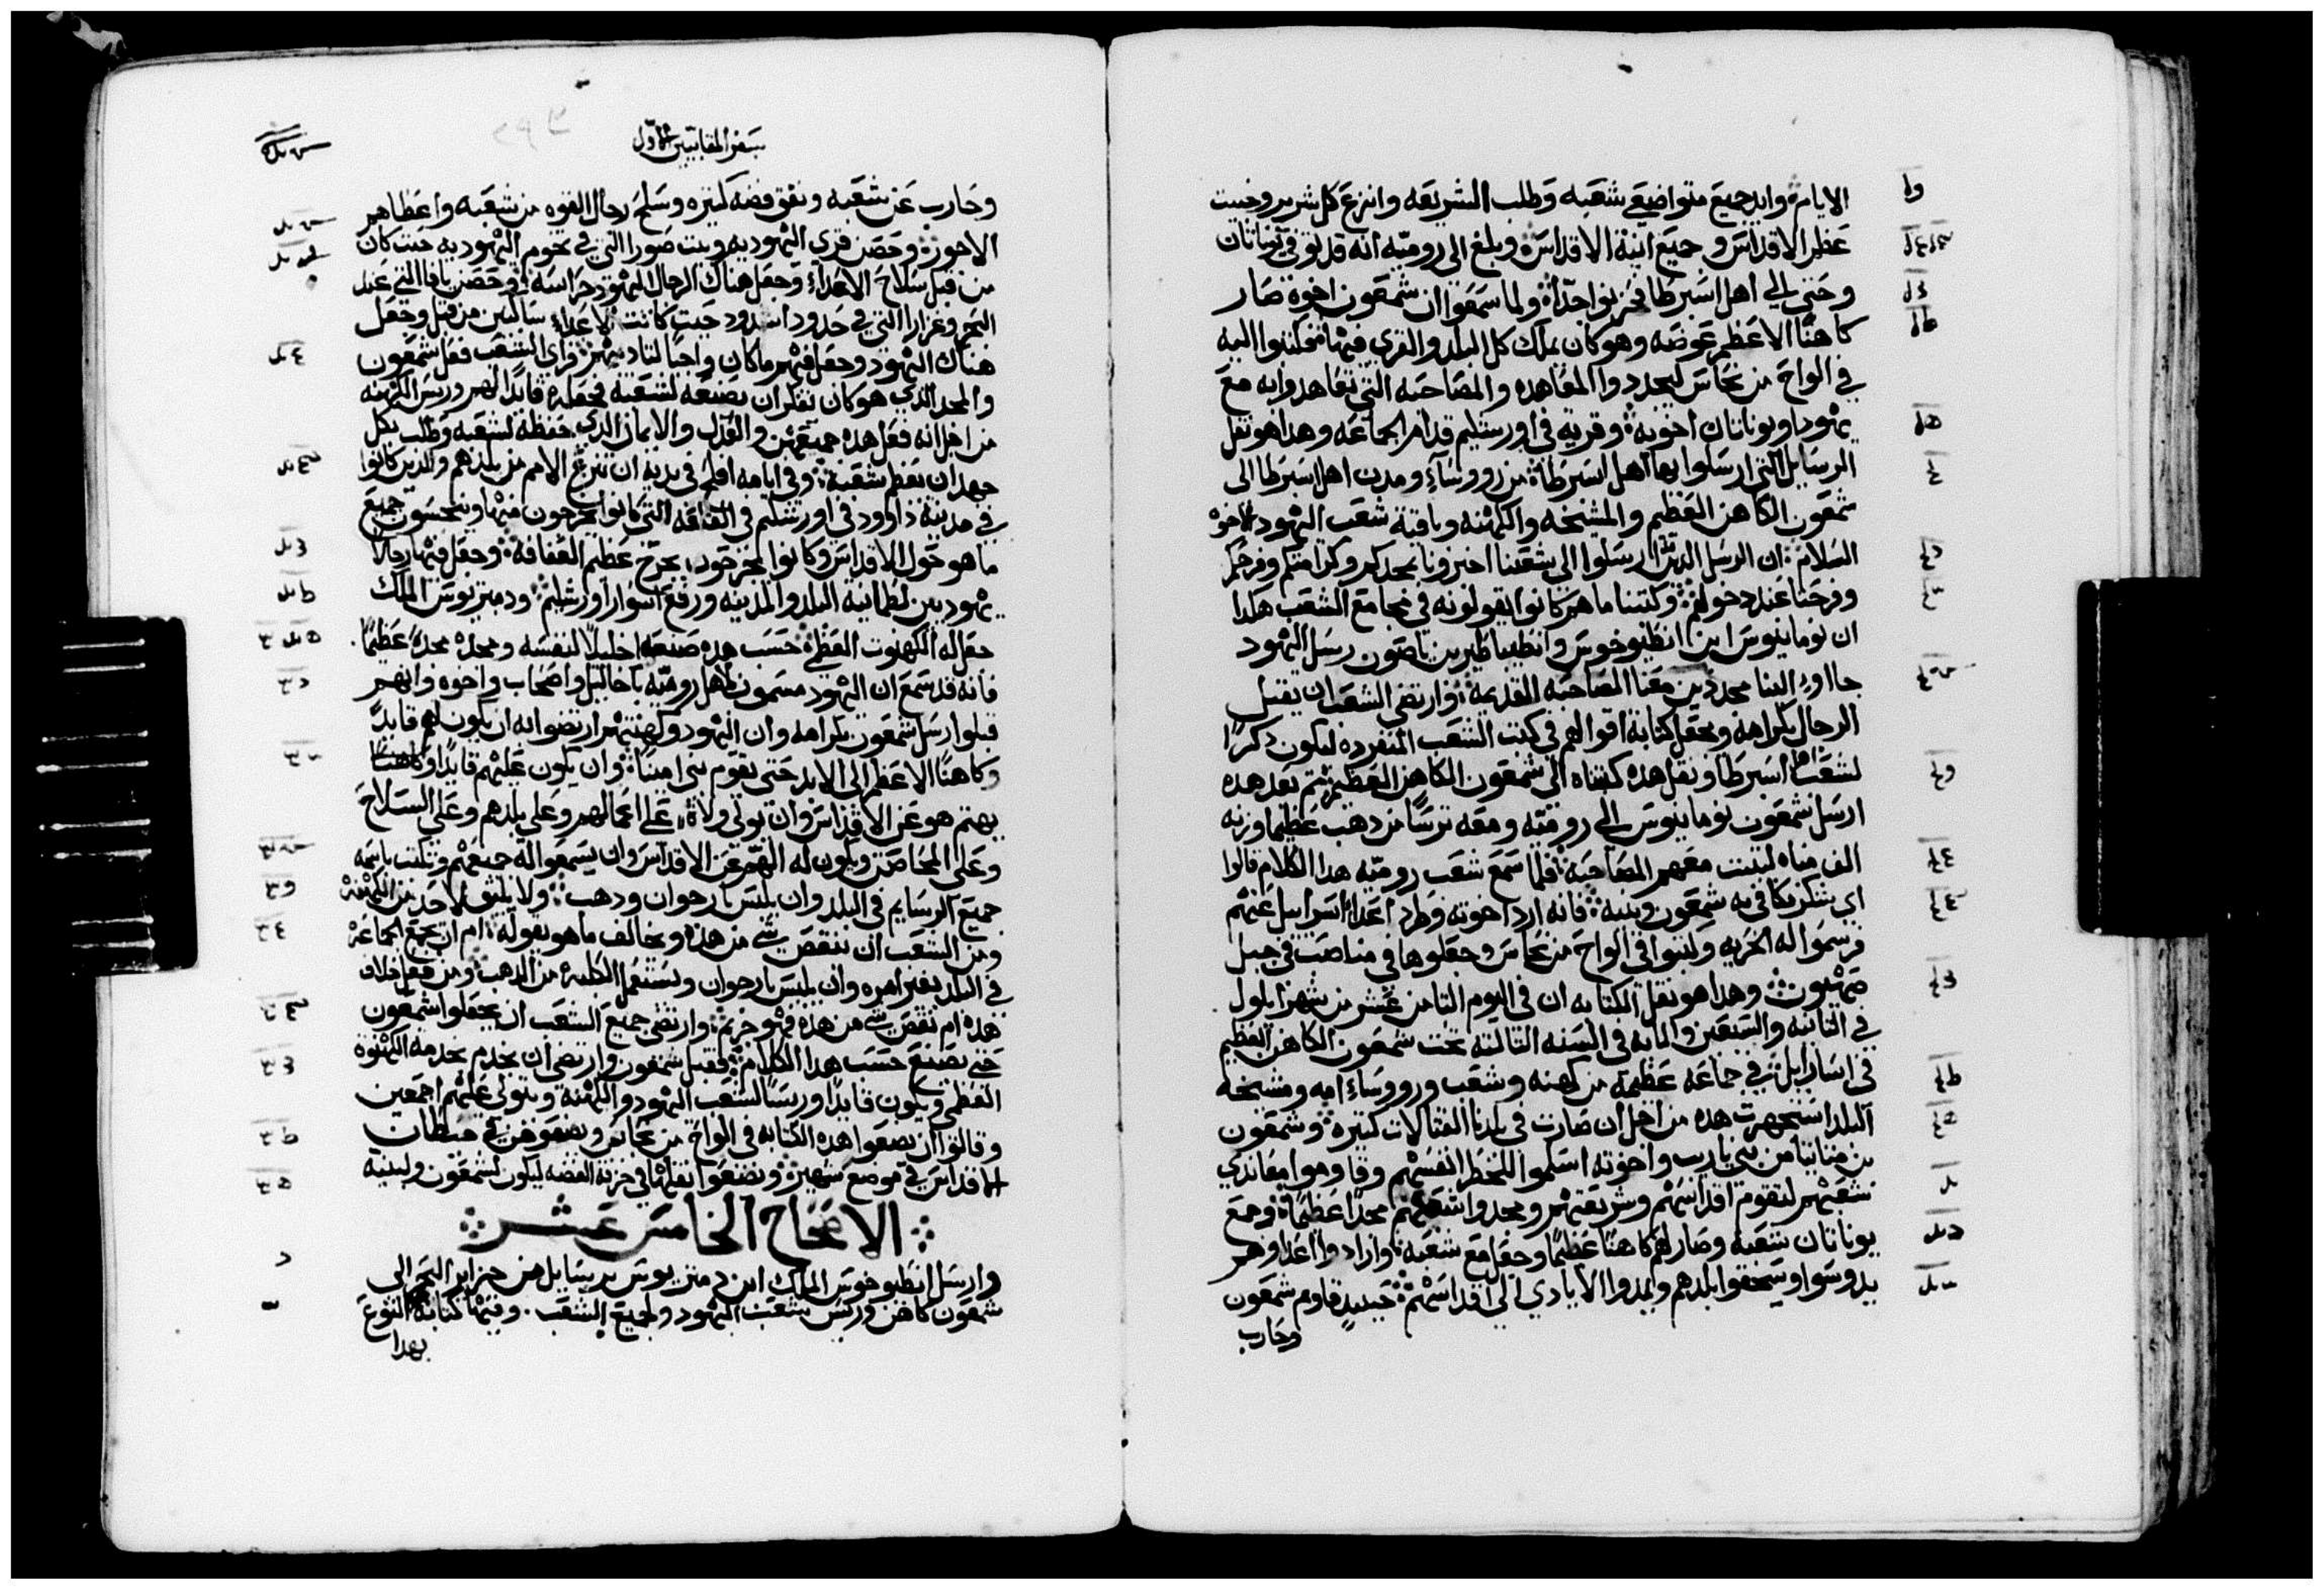 الايام وايد جميع متواضعي شعبه وطلب الشريعه وانتزع كل شرير وخبيث
عظم الاقداس و جميع انية الاقداس وبلغ الى روميه انه قد توفي يوناتان
وحتي الي اهل اسبرطا فحزنوا جدآ ولما سمعوا ان شمعون اخوه صار
كاهنًا الاعظم عوضه وهو كان يملك كل البلد والقري فيها فكتبوا اليه
في الواح من نحاس ليجددوا المعاهده والمصاحبه التي تعاهدوا به مع
يهودا ويوناتان اخوته وقريه في اورشليم قدام الجماعه وهدا هو نقل
الرسايل التي ارسلوا بها اهل اسبرطا من روسآء ومدن اهل اسبرطا الى
شمعون الكاهن العظيم والمشيخه والكهنه وباقية شعب اليهود الاخوه
السلام ان الرسل الدين ارسلوا الى شعبنا اخبرونا بمجدكم وكرامتكم وفرحكم
وفرحنا عند دخولهم وكتبنا ما هم كانوا يقولونه في مجامع الشعب هكدا
ان نوماينوس ابن انطيوخوس وانطيباطير بن ياصون رسل اليهود
جاووا الينا مجددين معنا المصاحبه القديمه وارتضي الشعب ان يقبل
الرجال بكرامه ويجعل كتابة اقوالهم في كتب الشعب المنفرده ليكون دكرًا
لشعب اهل اسبرطا ونقل هده كتبناه الى شمعون الكاهن العظيم ثم بعد هده
ارسل شمعون نوماينوس الي روميه ومعه ترسًا من دهب عظيمًا وزنه
الف مناه لتثبت معهم المصاحبه فلما سمع شعب روميه هدا الكلام قالوا
اي شكر نكافي به شمعون وبنيه فانه ارد اخوته وطرد اعداء اسراييل عنهم
فرسموا له الحريه وكتبوا في الواح من نحاس وجعلوها في مناصب في جبل
صهيون وهدا هو نقل الكتابه ان في اليوم الثامن عشر من شهر ايلول
في الثانيه والسبعين والمايه في السنه الثالثه تحت شمعون الكاهن العظيم
في اسارابل في جماعه عظيمة من كهنه وشعب وروساء امه ومشيخة
البلد استجهرت هده من اجل ان صارت في بلدنا القتالات كثيره وشمعون
بن متاتيا من بني ياريب واخوته اسلموا للخطر انفسهم وقاوموا معاندي
شعبهم لتقوم اقداسهم وشريعتهم ومجدوا شعبهم مجدًا عظيمًا وجمع
يوناتان شعبه وصار لهم كاهنًا عظيمًا وجعل مع شعبه وارادوا اعداوهم
يدوسوا ويسحقوا بلدهم ويمدوا الايادي الي اقداسهم حينيدٍ قاوم شمعون
وحارب
سفر المقابيين الاول
وحارب عن شعبه ونفق فضه كثيره وسلح رجال القوه من شعبه واعطاهم
الاجوره وحصن قري اليهوديه وبيت صورا التي في تخوم اليهوديه حيث كان
من قبل سلاح الاعداء وجعل هناك الرجال اليهود حراسه وحصن يافا التي عند
البحر وغزارا التي في حدود اشدود حيث كانت الاعداء ساكنين من قبل وجعل
هناك اليهود وجعل فيهم ما كان واجبًا لتاديبهم فراى الشعب فعل شمعون
والمجد الذي هو كان يفكر ان يصنعه لشعبه فجعله قايدًا لهم وريس الكهنه
من اجل انه فعل هده جميعهن والعدل والايمان الذي حفظه لشعبه وطلب بكل
جهد ان يعظم شعبه وفي ايامه افلح في يديه ان تنزع الامم من بلدهم والذين كانوا
في مدينة داوود في اورشليم في القلعه التي كانوا يخرجون منها وينجسون جميع
ما هو حول الاقداس وكانوا يجرحون بجرح عظيم العفافه وجعل فيها رجالًا
يهوديين لطمانية البلد والمدينه ورفع اسوار اورشليم ودميتريوس الملك
جعل له الكهنوت العظمي حسب هده صنعه اخليلًا لنفسه ومجده مجدًا عظيمًا
فانه قد سمع ان اليهود مسمون لاهل روميه باخاليل واصحاب واخوه وانهم
قبلوا رسل شمعون بكرامه وان اليهود وكهنتهم ارتضوا انه ان يكون لهم قايدًا
وكاهنًا الاعظم الى الابد حتى يقوم نبي امينًا وان يكون عليهم قايدًا وكاهنًا
يهتم هو عن الاقداس وان يولي ولاة علي اعمالهم وعلي بلدهم وعلي السلاح
وعلي المحاصن ويكون له الهم عن الاقداس وان يسمعوا له جميعهم وتكتب باسمه
جميع الرسايم في البلد وان يلبس بارجوان ودهب ولا يليق لاحد من الكهنة
ومن الشعب ان ينقض شي من هده ويخالف ما هو يقوله ام ان يجمع الجماعة
في البلد بغير امره وان يلبس بارجوان ويستعمل الكلبة من الدهب ومن فعل خلاف
هده ام نقض شي من هده فهو جريم وارتضي جميع الشعب ان يجعلوا شمعون
حتي يصنع حسب هدا الكلام فقبل شمعون وارتضي ان يخدم بخدمه الكهنوه
العظمي ويكون قايدًا وريسًا لشعب اليهود والكهنه ويتولى عليهم اجمعين
وقالوا ان يضعوا هده الكتابه في الواح من نحاس ويضعوهن في حيطان
الاقداس في موضع شهير ويضعوا نقلها في خزنة الفضه ليكون لشمعون ولبنيه
الاصحاح الخامس عشر
وارسل انطيوخوس الملك ابن دميتريوس برسايل من جزاير البحر الى
شمعون كاهن وريس شعب اليهود ولجميع الشعب. وفيها كتابة النوع
بهدا